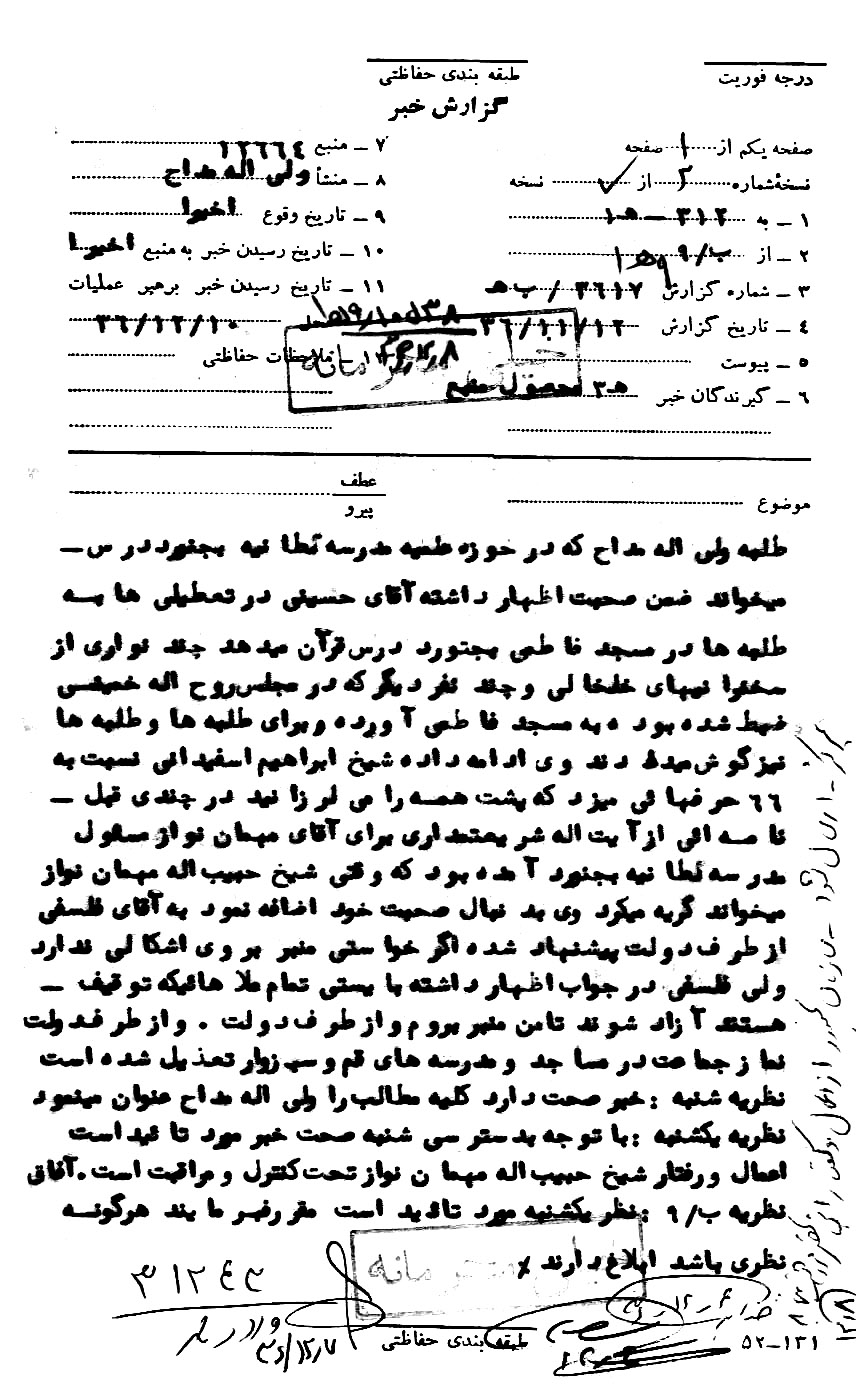 درجه فوریت
طبقه بندی حفاظتی
گزارش خبر
صفحه یکم از ۱ صفحه
نسخهٔ شماره ۲ از ۷ نسخه
۱ ــ به ۳۱۲ ــ ۱هـ
۲ ــ از ۹/ب
۳ ــ شماره گزارش ۳۶۱۷ / ب هـ
۴ ــ تاریخ گزارش ۳۶/۱۱/۱۲
۵ ــ پیوست
۶ ــ گیرندگان خبر هـ۳ محصول منبع
۷ ــ منبع ۱۲۶۶۴
۸ ــ منشأ ولی اله مداح
۹ ــ تاریخ وقوع اخیرا
۱۰ ــ تاریخ رسیدن خبر به منبع اخیرا
۱۱ ــ تاریخ رسیدن خبر برهبر عملیات
۳۶/۱۲/۱۰
ملاحظات حفاظتی
موضوع
عطف
پیرو
طلبه ولی اله مداح که در حوزه علمیه مدرسه نظا نیه بجنورد در س ــ
میخواند ضمن صحبت اظهار داشته آقای حسینی در تعطیلی ها بــه
طلبه ها در مسجد فا طمی بجنورد درس قرآن میدهد چند نواری از
سخنرا نیهای خلخا لی و چند نفر دیگر که در مجلس روح اله خمینــی
ضبط شده بود ه به مسجد فا طمی آ ورده و برای طلبه ها و طلبه ها
نیز گوش میداد ند وی ادامه داده شیخ ابراهیم اسفیدانی نسبت به
۶۶ حرفها ئی میزد که پشت همــه را می لرزا نید در چندی قبل ــ
نا مــه ائی از آیت اله شریعتمداری برای آقای مهمان نواز مسئول
مدر سه نظا نیه بجنورد آ مده بود که وقتی شیخ حبیب اله مهمان نواز
میخواند گریه میکرد وی بد نبال صحبت خود اضافه نمود به آقای فلسفی
از طر ف دولت پیشنهاد شده اگر خوا ستی منبر بر وی اشکا لی ندارد
ولی فلسفی در جواب اظهار داشته با یستی تمام ملا هائیکه تو قیف ــ
هستند آ زاد شوند تا من منبر بروم و از طرف دولت . و از طر ف دولت
نما ز جماعت در مسا جد و مدرسه های قم و سبزوار تعذیل شده است
نظریه شنبه : خبر صحت دارد کلیه مطالب را ولی اله مداح عنوان مینمود
نظریه یکشنبه : با تو جه بدستر سی شنبه صحت خبر مورد تا ئید است
اعمال و رفتار شیخ حبیب اله مهما ن نواز تحت کنترل و مراقبت است . آفاقی
نظریه ب/ ۹ : نظر یکشنبه مورد تائید است مقر رفیر ما یند هرگونــه
نظری باشد ابلاغ دارند
۳۱۲۴۳
۳۶/۱۲/۷
طبقه بندی حفاظتی
۵۲ــ۱۳۱